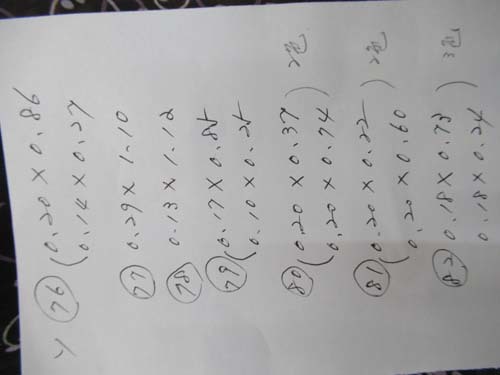 Y 76 ( 0.20 × 0.86
0.14 × 0.27
77 0.29 × 1.10
78 0.13 × 1.12
79 ( 0.17 × 0.85
0.10 × 0.25
80 ( 0.20 × 0.37 ) 2包
0.20 × 0.74
81 ( 0.20 × 0.22 ) 2包
0.20 × 0.60
82 0.18 × 0.73 ) 3包
0.18 × 0.24